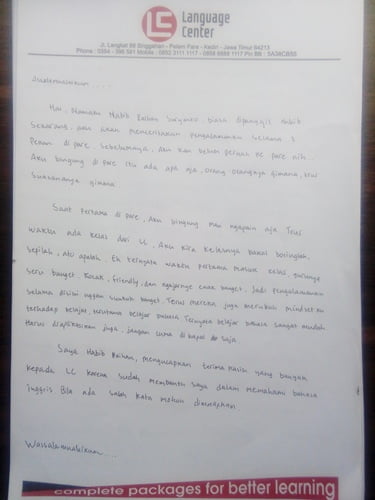 LC
Language
Center
Jl. Langkat 88 Singgahan - Pelem Pare - Kediri - Jawa Timur 64213
Assalamualaikum ....
Hai, Namaku Habib Raihan, biasa dipanggil Habib
Sekarang, aku akan menceritakan pengalamanku selama 2
Pekan di pare. Sebelumnya, aku kan belum pernah ke pare nih.
Aku bingung di pare itu ada apa aja, orang orangnya gimana, trus
Suasananya gimana.
Saat Pertama di pare, Aku bingung mau ngapain aja. Trus
waktu ada kelas dari LC, Aku kira kelasnya bakal boringlah,
sepilah, atau apalah. Eh ternyata waktu pertama masuk kelas, tutornya
seru banget. Kocak, friendly, dan ngajarnya enak banget. Jadi pengalamanku
selama disini nggak suntuk banget. Terus mereka juga merubah mindsetku
terhadap belajar, terutama belajar bahasa. Ternyata belajar bahasa sangat mudah.
Harus diaplikasikan juga, jangan cuma dihapal saja.
Saya Habib Raihan, mengucapkan terima kasih yang banyak
kepada LC karena sudah membantu saya dalam memahami bahasa
Inggris. Bila ada salah kata mohon dimaafkan.
Wassalamualaikum ...
complete packages for better learning